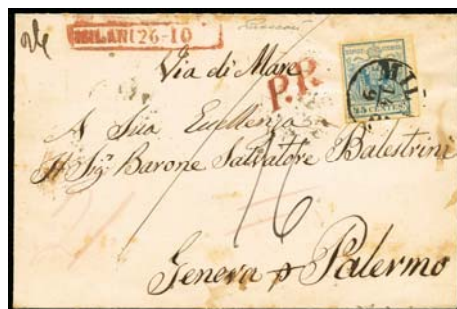 MILAN 26-10
Via di Mare
P.R
MIL
45 CENTES
A Sua Eccellenza
Il Sigr Barone Salvatore Balestrini
16
Genova p Palermo